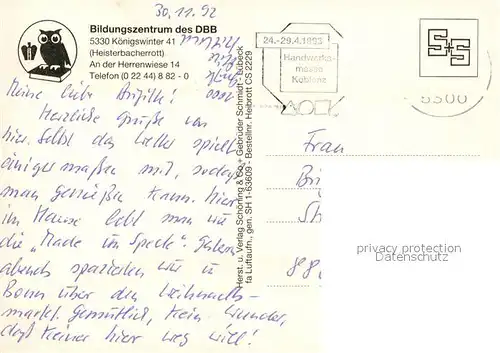 30.11.92
Bildungszentrum des DBB
5330 Königswinter 41
(Heisterbacherrott)
An der Herrenwiese 14
Telefon (0 22 44) 8 82 - 0
Meine liebe Brigitte!
Herzliche Grüße von
hier. Selbst das Wetter spielt
einigermaßen mit, sodass
man genießen kann. Hier
im Hause lebt man wie
die „Made im Speck". Gestern
abend spazierten wir in
Bonn über den Weihnachts-
markt. Gemütlich, kein Wunder,
daß keiner hier weg will!
Herst. u. Verlag Schöning & Co + Gebrüder Schmidt - Lübeck
fa Luftaufn., gen. SH 1-63609 - Bestellnr. Heibrott CS 2229
24.-29.4.1993
Handwerks-
messe
Koblenz
S+S
5300
Frau
privacy protection
Datenschutz
88